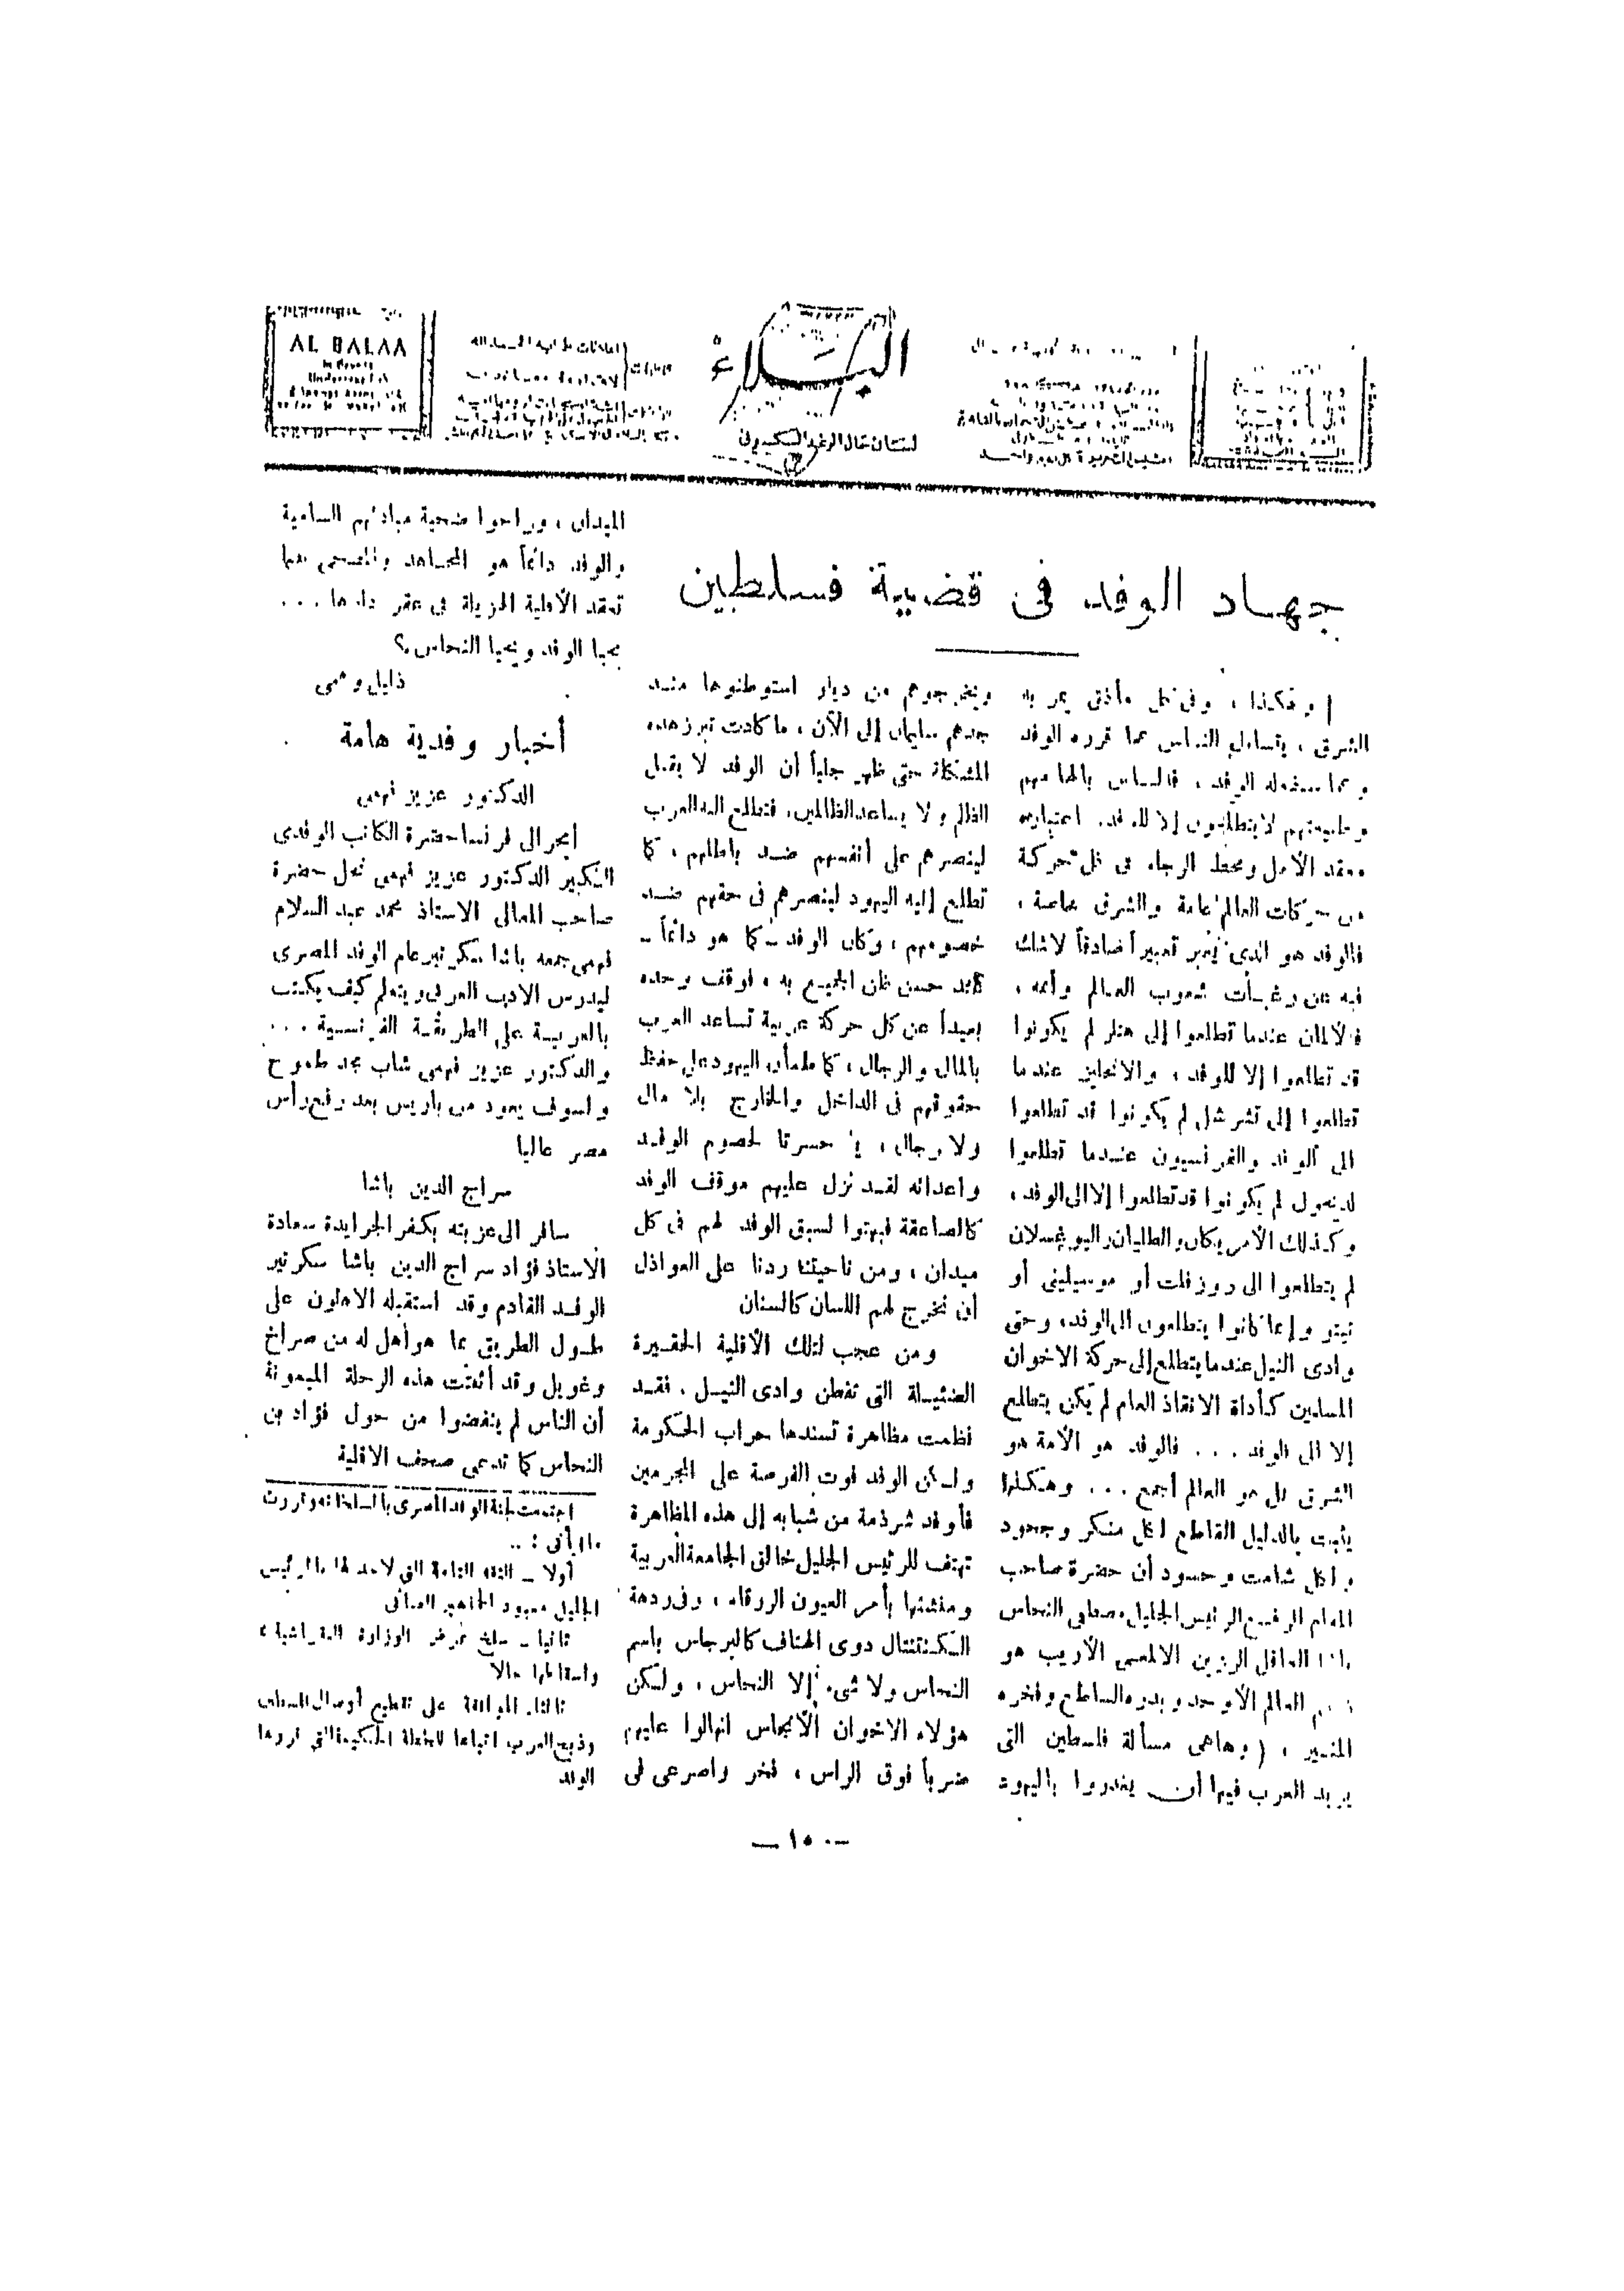 AL BALAA
البلاء
لسان حال الرغد السكسونى
جهاد الوفد فى قضية فسلطين
وهكذا ، وفى كل مأذق يمر به
الشرق ، يتساءل الناس عما قرره الوفد
وعما سيفعله الوفد ، فالناس بالهامهم
وطبيعتهم لا يتطلعون إلا للوفد، اعتباره
معقد الأمل ومحط الرجاء فى كل حركة
من حركات العالم عامة والشرق خاصة ،
فالوفد هو الذى يعبر تعبيراً صادقاً لاشك
فيه عن رغبات شعوب العالم وأممه ،
فالألمان عندما تطلعوا إلى هتلر لم يكونوا
قد تطلعوا إلا للوفد ، والانجليز عندما
تطلعوا إلى تشرشل لم يكونوا قد تطلعوا
الى ألوفد والفرنسيون عندما تطلعوا
لديغول لم يكونوا قد تطلعوا إلا الى الوفد ،
وكذلك الأمريكان والطليان واليوغسلان
لم يتطلعوا الى روزفلت أو موسيلينى أو
تيتو وإنما كانوا يتطلعون الى الوفد، وحتى
وادى النيل عندما يتطلع إلى حركة الاخوان
المسلمين كأداة الانقاذ العام لم يكن يتطلع
إلا الى الوفد ... فالوفد هو الأمة هو
الشرق بل هو العالم أجمع ... وهكذا
يثبت بالدليل القاطع لكل منكر وجحود
ولكل شامت وحسود أن حضرة صاحب
المقام الرفيع الرئيس الجليل مصطفى النحاس
باشا العاقل الرزين الالمعى الأريب هو
العالم الأوحد وبدره الساطع وفخره
المنير ، ( وهاهى مسألة فلسطين التى
يريد العرب فيها أن يغدروا باليهود
ويخرجوهم من ديار استوطنوها منذ
جدهم سليمان إلى الآن ، ما كادت تبرز هذه
المشكلة حتى ظهر جلياً أن الوفد لا يقبل
الظلم ولا يساعد الظالمين، فتطلع اليه العرب
لينصرهم على أنفسهم ضد باطلهم ، كما
تطلع إليه اليهود لينصرهم فى حقهم ضد
خصومهم ، وكان الوفد - كما هو دائماً -
عند حسن ظن الجميع به ، فوقف وحده
بعيداً عن كل حركة عربية تساعد العرب
بالمال والرجال ، كما طمأن اليهود على حفظ
حقوقهم فى الداخل والخارج بلا مال
ولا رجال ، يا حسرتا لخصوم الوفد
واعدائه لقد نزل عليهم موقف الوفد
كالصاعقة فبهتوا لسبق الوفد لهم فى كل
ميدان ، ومن ناحيتنا ردنا على العواذل
أن نخرج لهم اللسان كالسنان
ومن عجب لتلك الأقلية الحقيرة
الضئيلة التى تقطن وادى النيل . فقد
نظمت مظاهرة تسندها حراب الحكومة
ولكن الوفد فوت الفرصة على المجرمين
فأوفد شرذمة من شبابه إلى هذه المظاهرة
تهتف للرئيس الجليل خالق الجامعة العربية
ومنشئها بأمر العيون الزرقاء ، وفى ردهة
الكنتننتال دوى الهتاف كالبرجاس باسم
النحاس ولا شىء إلا النحاس ، ولكن
هؤلاء الاخوان الأنجاس انهالوا عليهم
ضرباً فوق الراس ، فخر واصرعى فى
الميدان ، وراحوا ضحية مبادئهم السامية
والوفد دائماً هو المجاهد والمضحى بينما
تقعد الأقلية الهزيلة فى عقر دارها ...
يحيا الوفد ويحيا النحاس ؟
ذليل وفى
أخبار وفدية هامة
الدكتور عزيز فهمى
أبحر الى فرنسا حضرة الكاتب الوفدى
الكبير الدكتور عزيز فهمى نجل حضرة
صاحب المعالى الاستاذ محمد عبد السلام
فهمى جمعه باشا سكرتير عام الوفد المصرى
ليدرس الادب العربى ويتعلم كيف يكتب
بالعربية على الطريقة الفرنسية ...
والدكتور عزيز فهمى شاب مجد طموح
ولسوف يعود من باريس بعد رفع رأس
مصر عاليا
سراج الدين باشا
سافر الى عزبته بكفر الجرايدة سعادة
الاستاذ فؤاد سراج الدين باشا سكرتير
الوفد القادم وقد استقبله الاهلون على
طول الطريق بما هو أهل له من صراخ
وعويل وقد أثبتت هذه الرحلة الميمونة
أن الناس لم ينفضوا من حول فؤاد بن
النحاس كما تدعى صحف الاقلية
اجتمعت لجنة الوفد المصرى بالسلخانه وقررت
ما يأتى : ..
أولا - الثقة التامة التى لا حد لها بالرئيس
الجليل معبود الجماهير
ثانيا - سلخ الوزارة النقراشية
واسقاطها حالا
ثالثا الموافقة على تقطيع أوصال فلسطين
وذبح العرب اتباعا للخطة الحكيمة التى قررها
الوفد
— ١٥٠ —